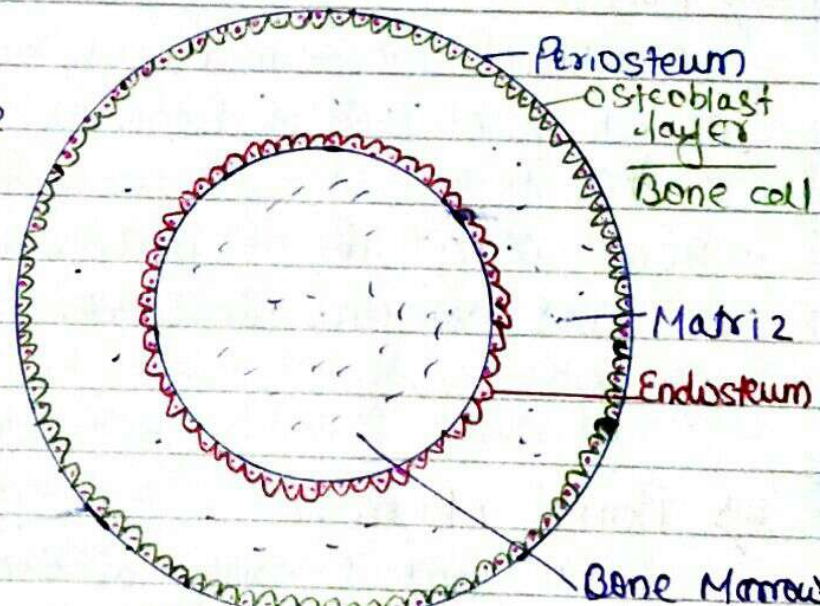 Periosteum
osteoblast
layer
Bone cell
Matriz
Endosteum
Bone Marrow